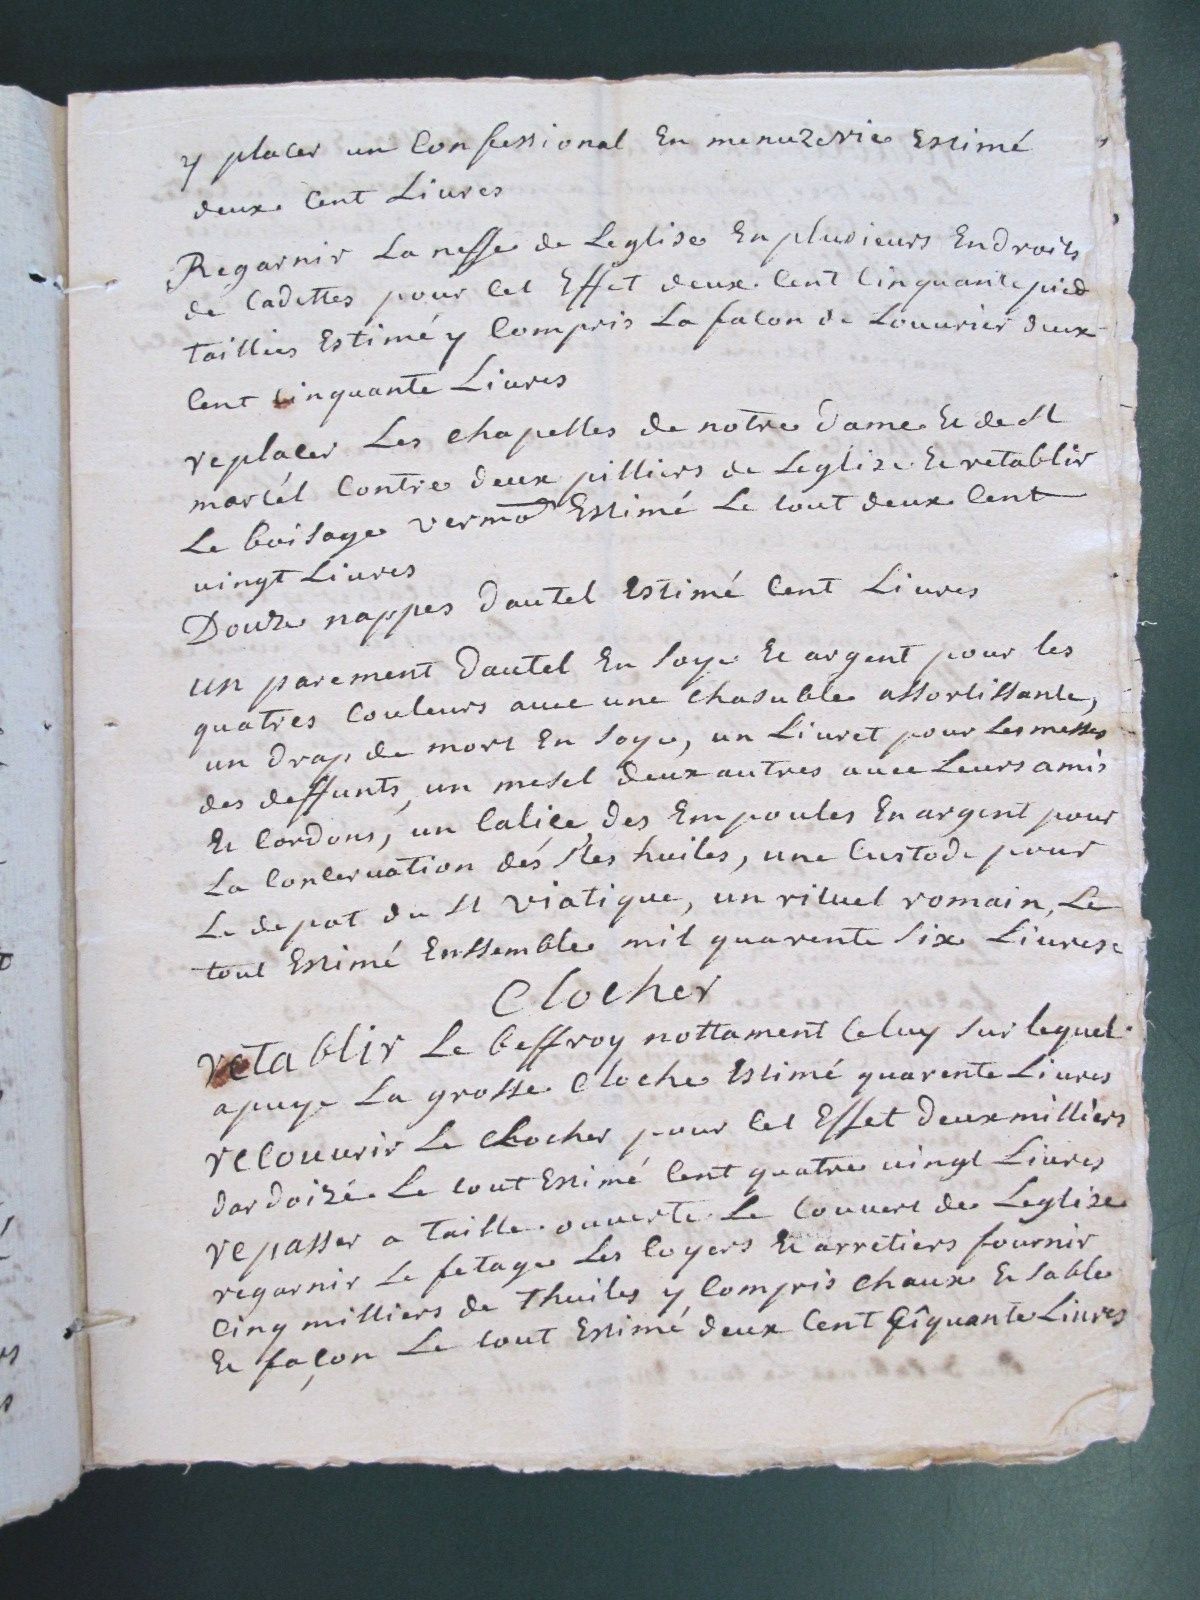 y placer un Confessional En menuzerie Estimé
deux Cent Livres
Regarnir La neffe de Leglise En plusieurs Endroits
de Cadettes pour Cet Effet deux Cent Cinquante pied
taillies Estimé y Compris La facon de Louvrier deux
Cent Cinquante Livres
replacer Les chapelles de notre dame Et de St
marcél Contre deux pilliers de Leglise Et retablir
Le boisage Estimé Le tout deux Cent
vingt Livres
Douze nappes dautel Estimé Cent Livres
un parement dautel En Soye Et argent pour les
quatres Couleurs avec une chasuble assortissante,
un drap de mort En Soye, un Livret pour Les messes
des deffunts, un mesel deux autres avec Leurs amis
Et Cordons, un Calice, des Empoules En argent pour
La Conservation dés Stes huiles, une Custode pour
Le depot du St viatique, un rituel romain, Le
tout Estimé Enssemble mil quarente Six Livres
Clocher
retablir Le beffroy nottament Celuy Sur lequel
apuye La grosse Cloche Estimé quarente Livres
recouvrir Le Clocher pour Cet Effet deux milliers
dardoizée Le tout Estimé Cent quatre vingt Livres
repasser a taille ouverte Le Couvert de Leglise
regarnir Le fetage Les Coyers Et arretiers fournir
Cinq milliers de Thuiles y Compris Chaux Et Sable
Et façon Le tout Estimé deux Cent Cîquante Livres